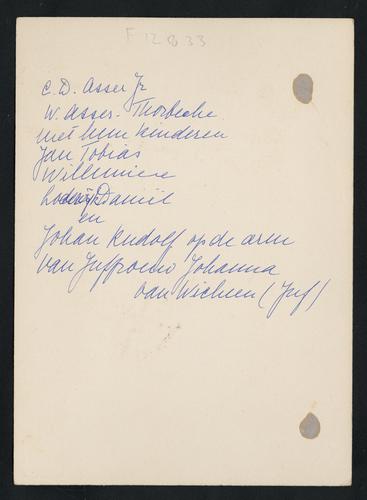 F 12 B 33
C. D. Asser Jr
W. Asser-Thorbecke
met hun kinderen
Jan Tobias
Willemiese
Lodewijk Daniël
en
Johan Rudolf op de arm
van Juffrouw Johanna
van Wichen (Juf)